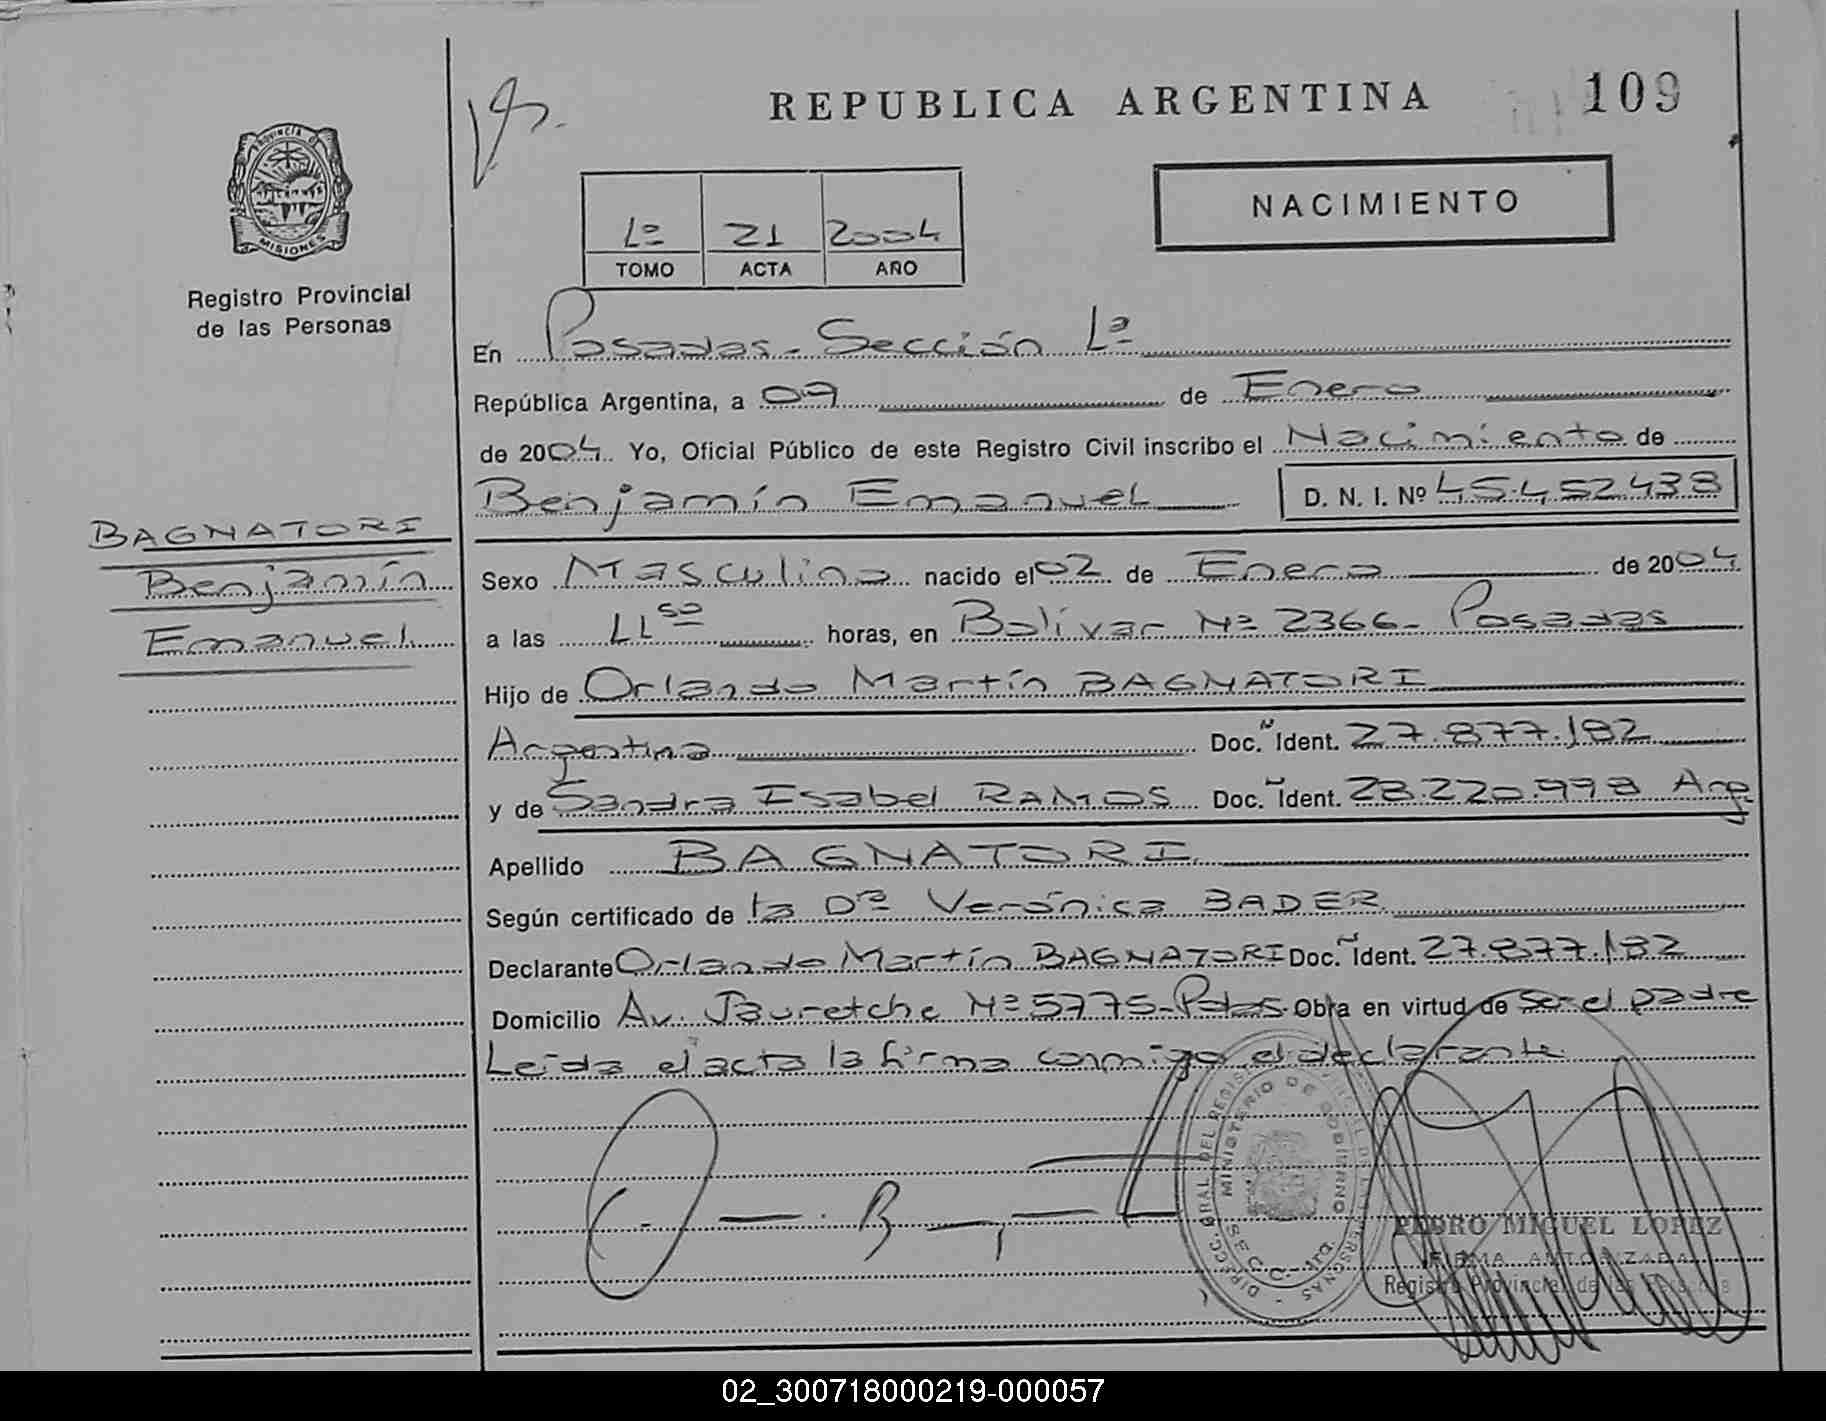 REPUBLICA ARGENTINA
109
PROVINCIA DE
MISIONES
Registro Provincial
de las Personas
NACIMIENTO
1º 21 2004
TOMO ACTA AÑO
En Posadas - Sección 1ª
República Argentina, a 07 de Enero
de 2004 Yo, Oficial Público de este Registro Civil inscribo el Nacimiento de
Benjamín Emanuel D. N. I. Nº 45.452.438
BAGNATORI
Benjamín
Emanuel
Sexo Masculino nacido el 02 de Enero de 2004
a las 11 50 horas, en Bolívar Nº 2366 - Posadas
Hijo de Orlando Martín BAGNATORI
Argentina Doc. Ident. 27.877.182
y de Sandra Isabel RAMOS Doc. Ident. 28.220.998 Arg.
Apellido BAGNATORI
Según certificado de la Dra Verónica BADER
Declarante Orlando Martín BAGNATORI Doc. Ident. 27.877.182
Domicilio Av. Jauretche Nº 5775 - Pdas. Obra en virtud de ser el padre
Leída el acta la firma conmigo el declarante
MINISTERIO DE GOBIERNO
PEDRO MIGUEL LOPEZ
FIRMA AUTORIZADA
Registro Provincial de las Personas
02_300718000219-000057